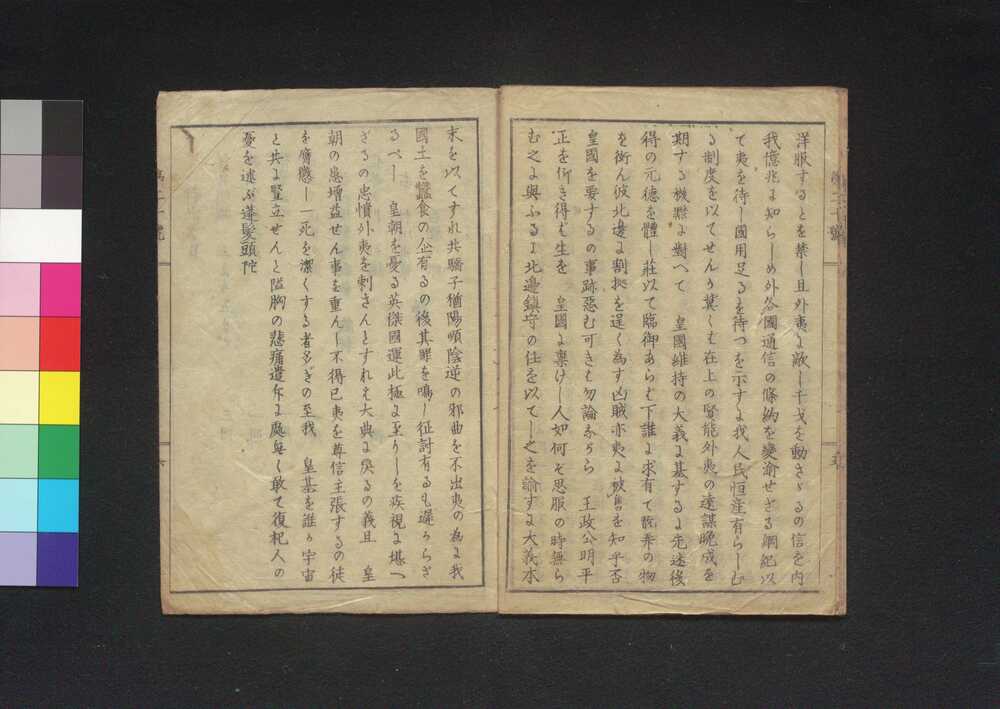 洋服するとを禁し且外夷に敵し干戈を動さゞるの信を内
我億兆に知らしめ外各國通信の條約を變渝せざる綱紀以
て夷を待し國用足るを待つを示すに我人民恒産有らしむ
る制度を以てせんり冀くは在上の賢能外夷の遠謀晩成を
期する機點に對へて　皇國維持の大義に基するに先迷後
得の元德を體し莊以て臨御あらは下誰に求有て既弄の物
を衒ん彼北邊に割拠を逞く為す凶賊亦夷に被售を知乎否
皇國を要するの事跡惡む可きは勿論ながら　王政公明平
正を仰き得は生を　皇國に稟けし人如何そ思服の時無ら
む之に與ふるに北邊鎮守の任を以てし之を諭すに大義本
末を以てすれ共驕子猶陽順陰逆の邪曲を不出夷の為に我
國土を蠶食の企有るの後其罪を鳴し征討有るも遲からざ
るべし　皇朝を憂る英傑國運此極に至りしを疾視に堪へ
ざるの忠憤外夷を刺さんとすれは大典に戻るの義且　皇
朝の患增益せん事を重んし不得已夷を尊信主張するの徒
を膺懲し一死を潔くする者多ぎの至我　皇基を誰か宇宙
と共に豎立せんと隘胸の悲痛遣斥に處無く敢て復杞人の
憂を述ぶ蓬髮頭陀